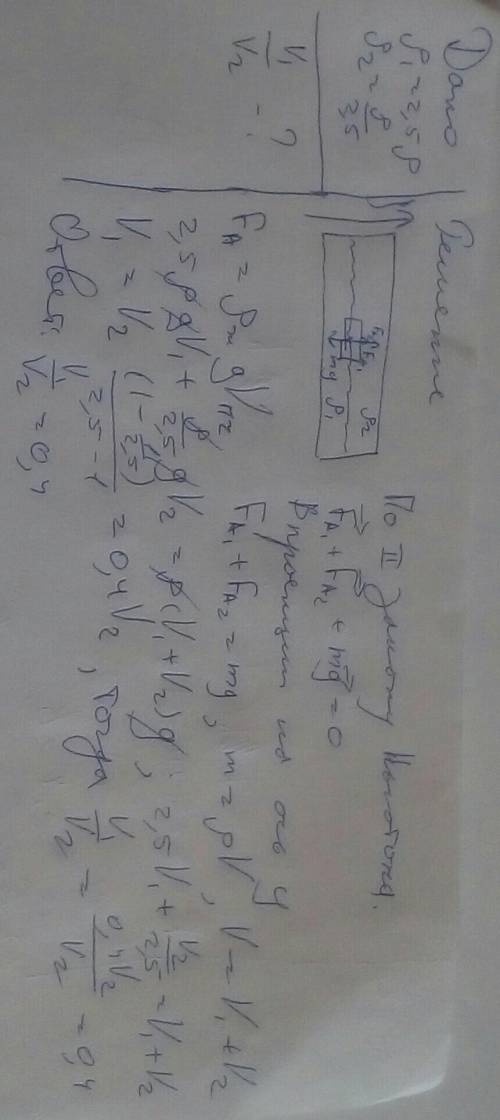 Дано
ρ₁ = 2,5ρ
ρ₂ = ρ/2,5
V₁/V₂ - ?
Решение
ρ₂
F_A₁ F_A₂
mg ρ₁
По II закону Ньютона.
F⃗_A₁ + F⃗_A₂ + mg⃗ = 0
В проекции на ось y
F_A = ρ_ж g V_пт, F_A₁ + F_A₂ = mg, m = ρV, V = V₁ + V₂
2,5ρgV₁ + ρ/2,5 gV₂ = ρ(V₁ + V₂)g; 2,5V₁ + V₂/2,5 = V₁ + V₂
V₁ = V₂ (1 - 1/2,5)/(2,5 - 1) = 0,4V₂, тогда V₁/V₂ = 0,4V₂/V₂ = 0,4
Ответ: V₁/V₂ = 0,4